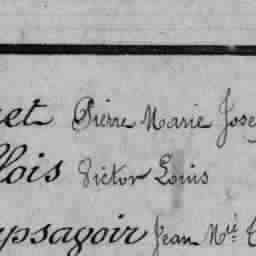 et Pierre Marie Jose
lois Victor Louis
psagoir Jean N.ré